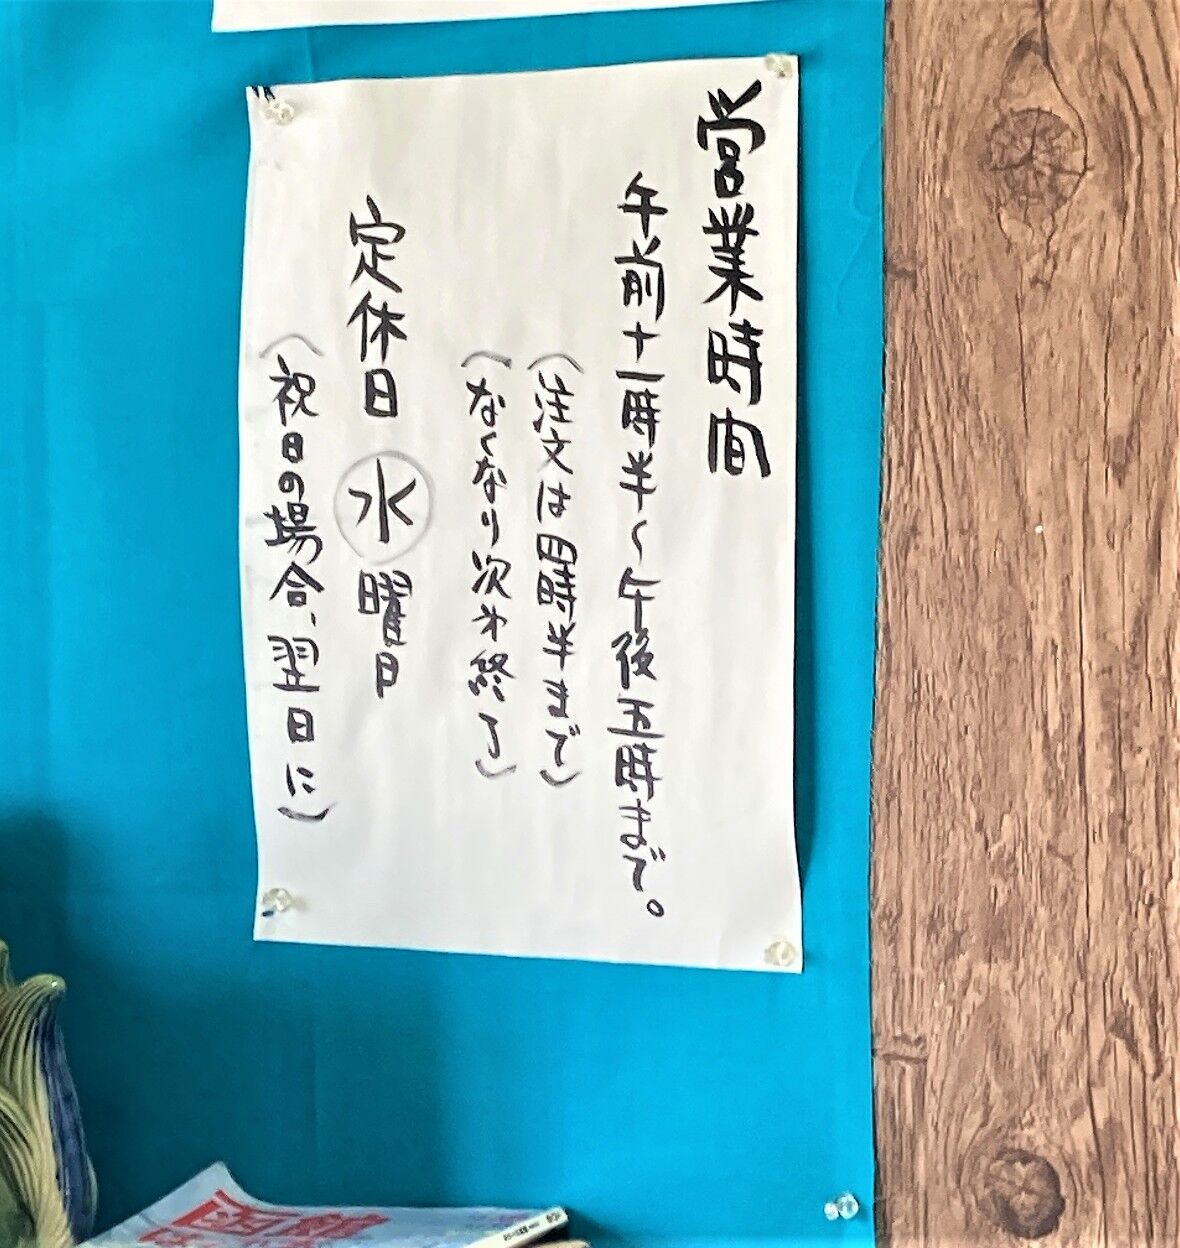 営業時間
午前十一時半〜午後五時まで。
(注文は四時半まで)
(なくなり次才終了)
定休日 水曜日
(祝日の場合、翌日に)